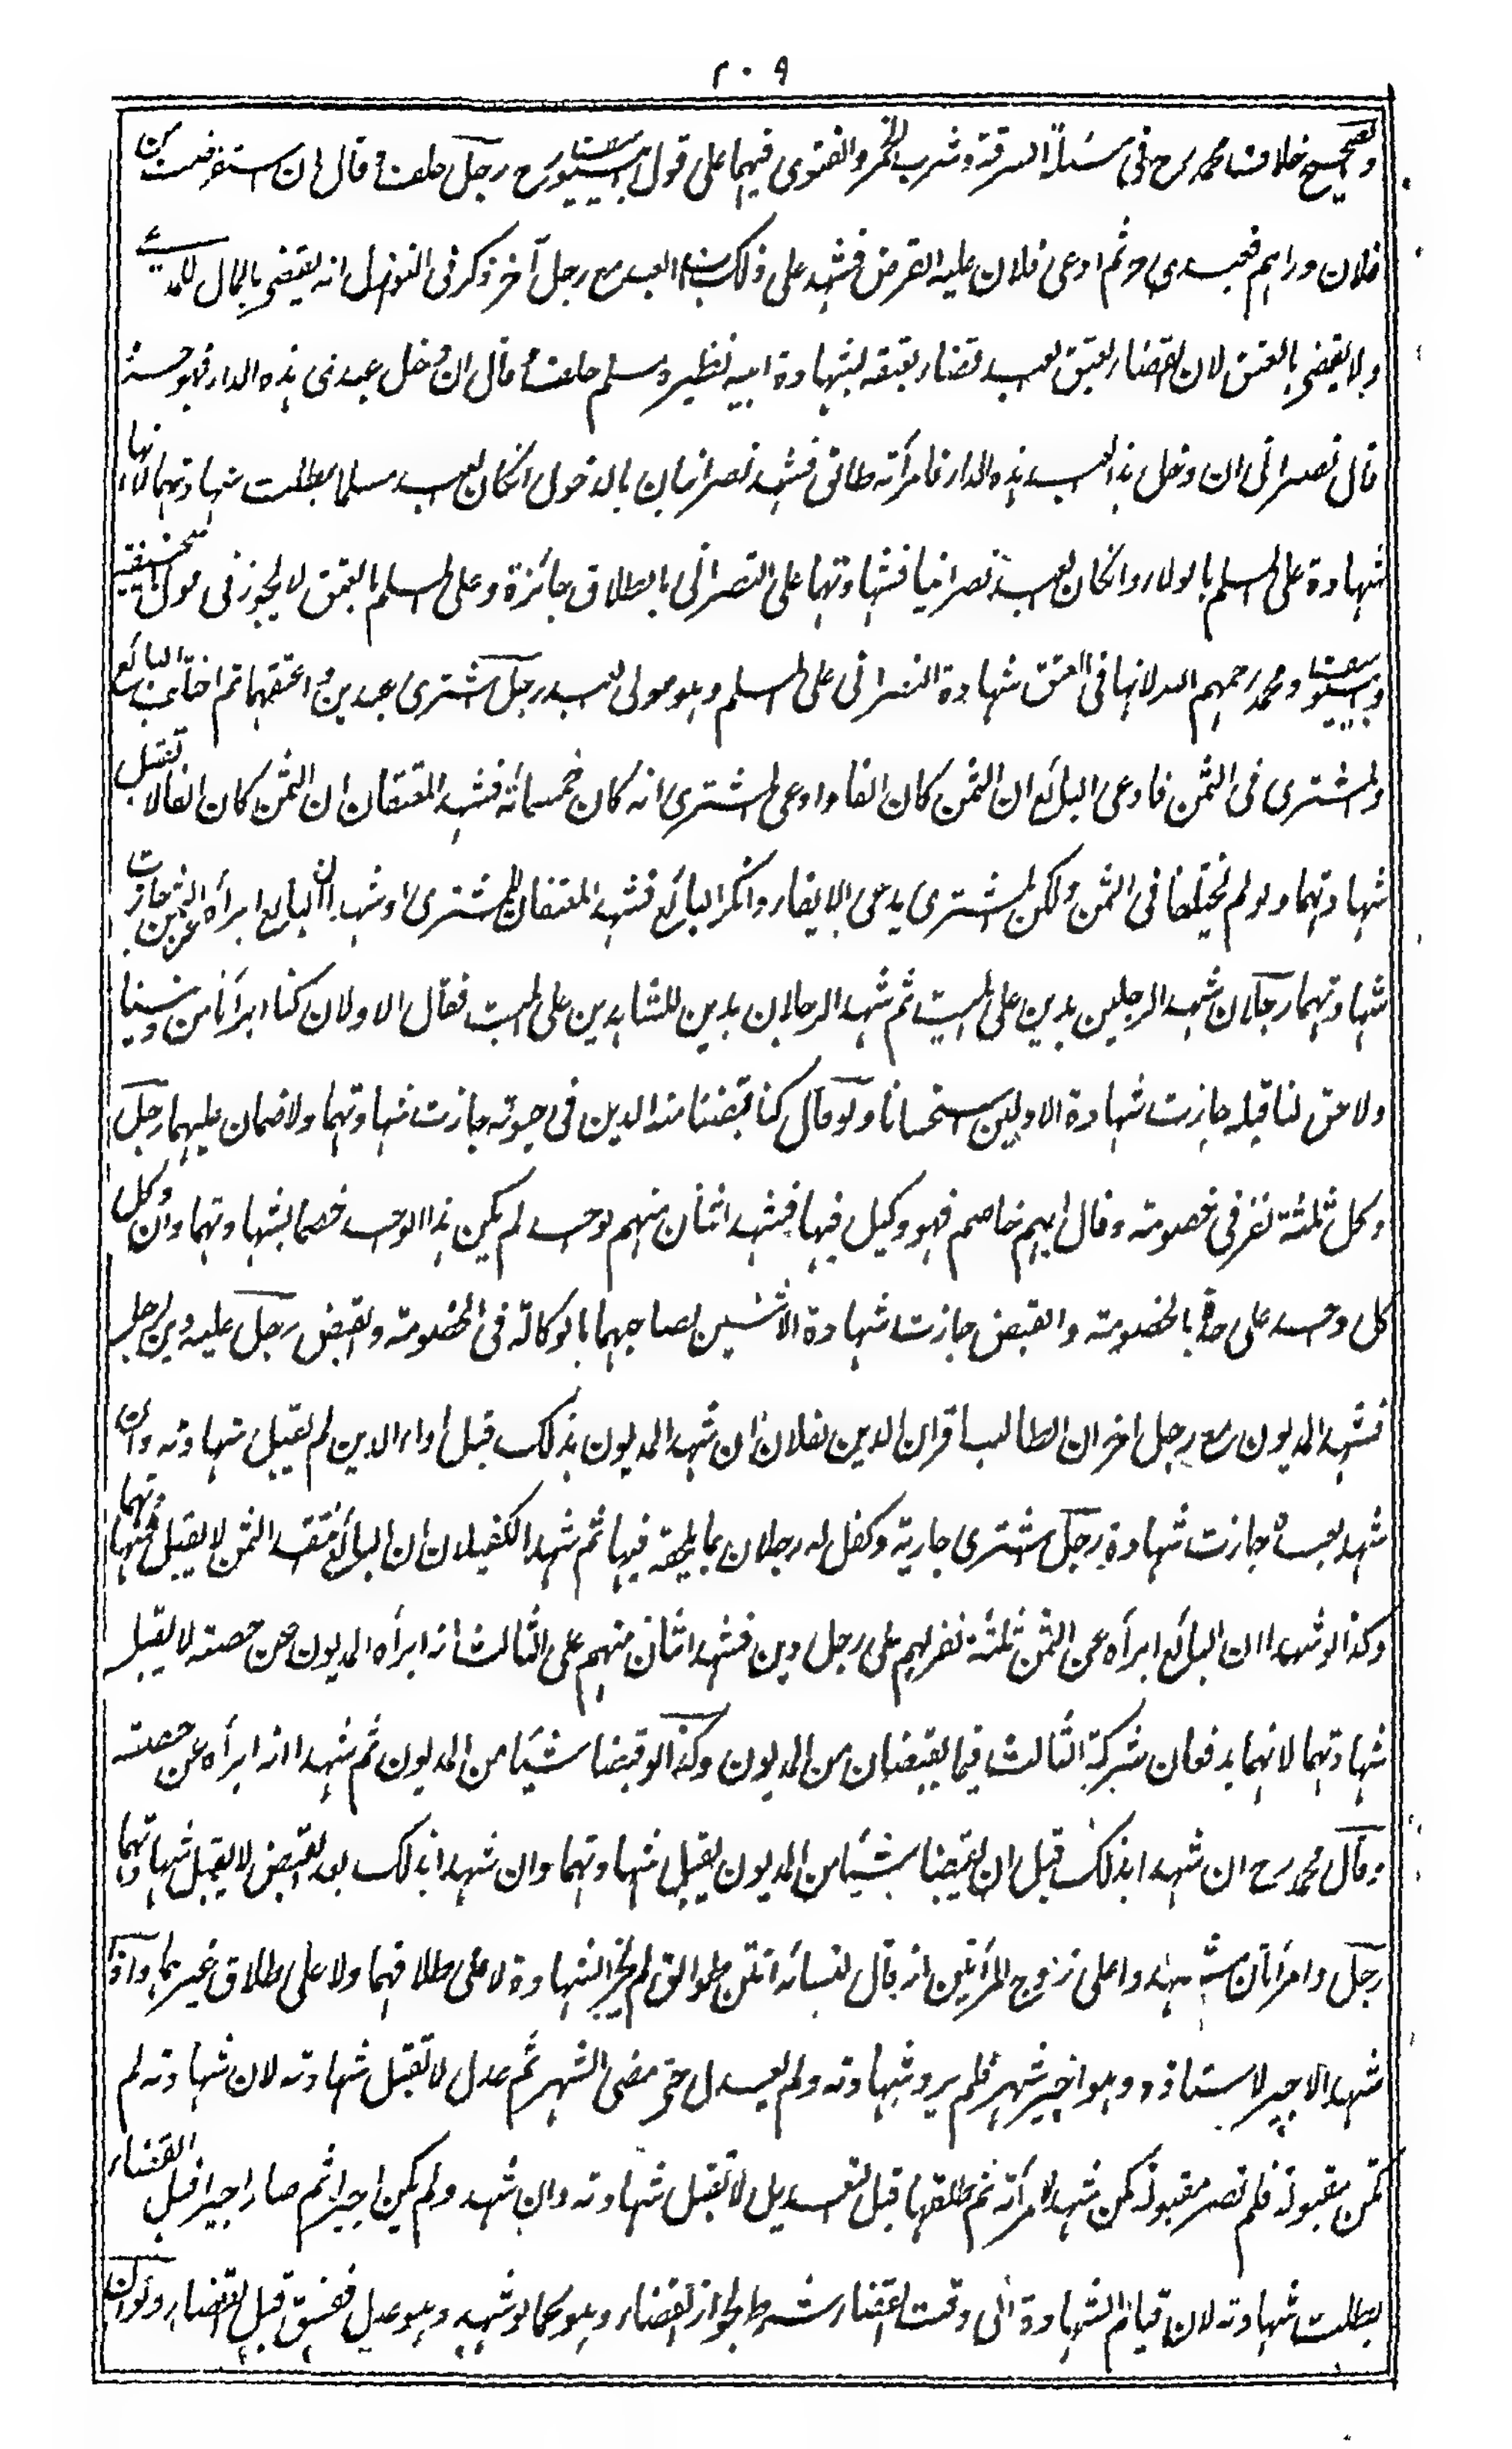 ٢٠٩
وتصحيح خلافا لمحمد رح فى مسئلة السرقة وشرب الخمر والفتوى فيهما على قول ابى يوسف رح رجل حلف وقال ان استقرضت من
فلان دراهم فعبدى حر ثم ادعى فلان عليه القرض فشهد على ذلك ابو العبد مع رجل آخر ذكر فى النوازل انه يقضى بالمال للمدعى
ولا يقضى بالعتق لان القضاء بعتق العبد قضاء بعتقه بشهادة ابيه نظيره مسلم حلف وقال ان دخل عبدى هذه الدار فهو حر
قال نصرانى ان دخل هذا العبد هذه الدار فامرأته طالق فشهد نصرانيان بالدخول ان كان العبد مسلما بطلت شهادتهما لانها
شهادة على المسلم بالولاء وان كان العبد نصرانيا فشهادتهما على النصرانى بالطلاق جائزة وعلى المسلم بالعتق لا يجوز فى قول ابى حنيفة
وابى يوسف ومحمد رحمهم الله لانها فى العتق شهادة النصرانى على المسلم وهو مولى العبد رجل اشترى عبدين واعتقهما ثم اختلف البائع
والمشترى فى الثمن فادعى البائع ان الثمن كان الفا وادعى المشترى انه كان خمسمائة فشهد المعتقان ان الثمن كان الفا لا تقبل
شهادتهما ولو لم يختلفا فى الثمن ولكن المشترى يدعى الايفاء وانكر البائع فشهد المعتقان للمشترى او شهدا ان البايع ابرأه عن الثمن جازت
شهادتهما رجلان شهدا لرجلين بدين على الميت ثم شهد الرجلان بدين للشاهدين على الميت فقال الاولان كنا ابرأنا من ديننا
ولا حق لنا قبله جازت شهادة الاولين استحسانا ولو قالا كنا قبضنا منه الدين فى حيوته جازت شهادتهما ولا ضمان عليهما رجل
وكل ثلثة نفر فى خصومته وقال ايهم خاصم فهو وكيل فيها فشهد اثنان منهم لواحد لم يكن هذا الواحد خصما بشهادتهما وان وكل
كل واحد على حدة بالخصومة والقبض جازت شهادة الاثنين لصاحبهما بالوكالة فى الخصومة والقبض رجل عليه دين لرجل
فشهد المديون مع رجل آخر ان الطالب اقر ان الدين لفلان ان شهد المديون بذلك قبل اداء الدين لم تقبل شهادته وان
شهد بعده جازت شهادة رجل اشترى جارية وكفل له رجلان بما يلحقه فيها ثم شهد الكفيلان ان البائع نقد الثمن لا يقبل شهادتهما
وكذا لو شهدا ان البائع ابرأه عن الثمن ثلثة نفر لهم على رجل دين فشهد اثنان منهم على الثالث انه ابرأ المديون عن حصته لا يقبل
شهادتهما لانهما يدفعان شركة الثالث فيما يقبضان من المديون وكذا لو قبضا شيئا من المديون ثم شهدا انه ابرأه عن حصته
وقال محمد رح ان شهدا بذلك قبل ان يقبضا شيئا من المديون يقبل شهادتهما وان شهدا بذلك بعد القبض لا يقبل شهادتهما
رجل وامرأتان شهدوا على زوج المرأتين انه قال لنسائه انتن طوالق لم يجز الشهادة لا على طلاقهما ولا على طلاق غيرهما واذا
شهد الاجير لاستاذه وهو اجير شهر فلم يرد شهادته ولم يعدل حتى مضى الشهر ثم عدل لا تقبل شهادته لان شهادته لم
تكن مقبولة فلم تصر مقبولة كمن شهد لامرأته ثم طلقها قبل التعديل لا تقبل شهادته وان شهد ولم يكن اجيرا ثم صار اجيرا قبل القضاء
بطلت شهادته لان قيام الشهادة الى وقت القضاء شرط لجواز القضاء وهو كما لو شهد وهو عدل ففسق قبل القضاء ولو ان